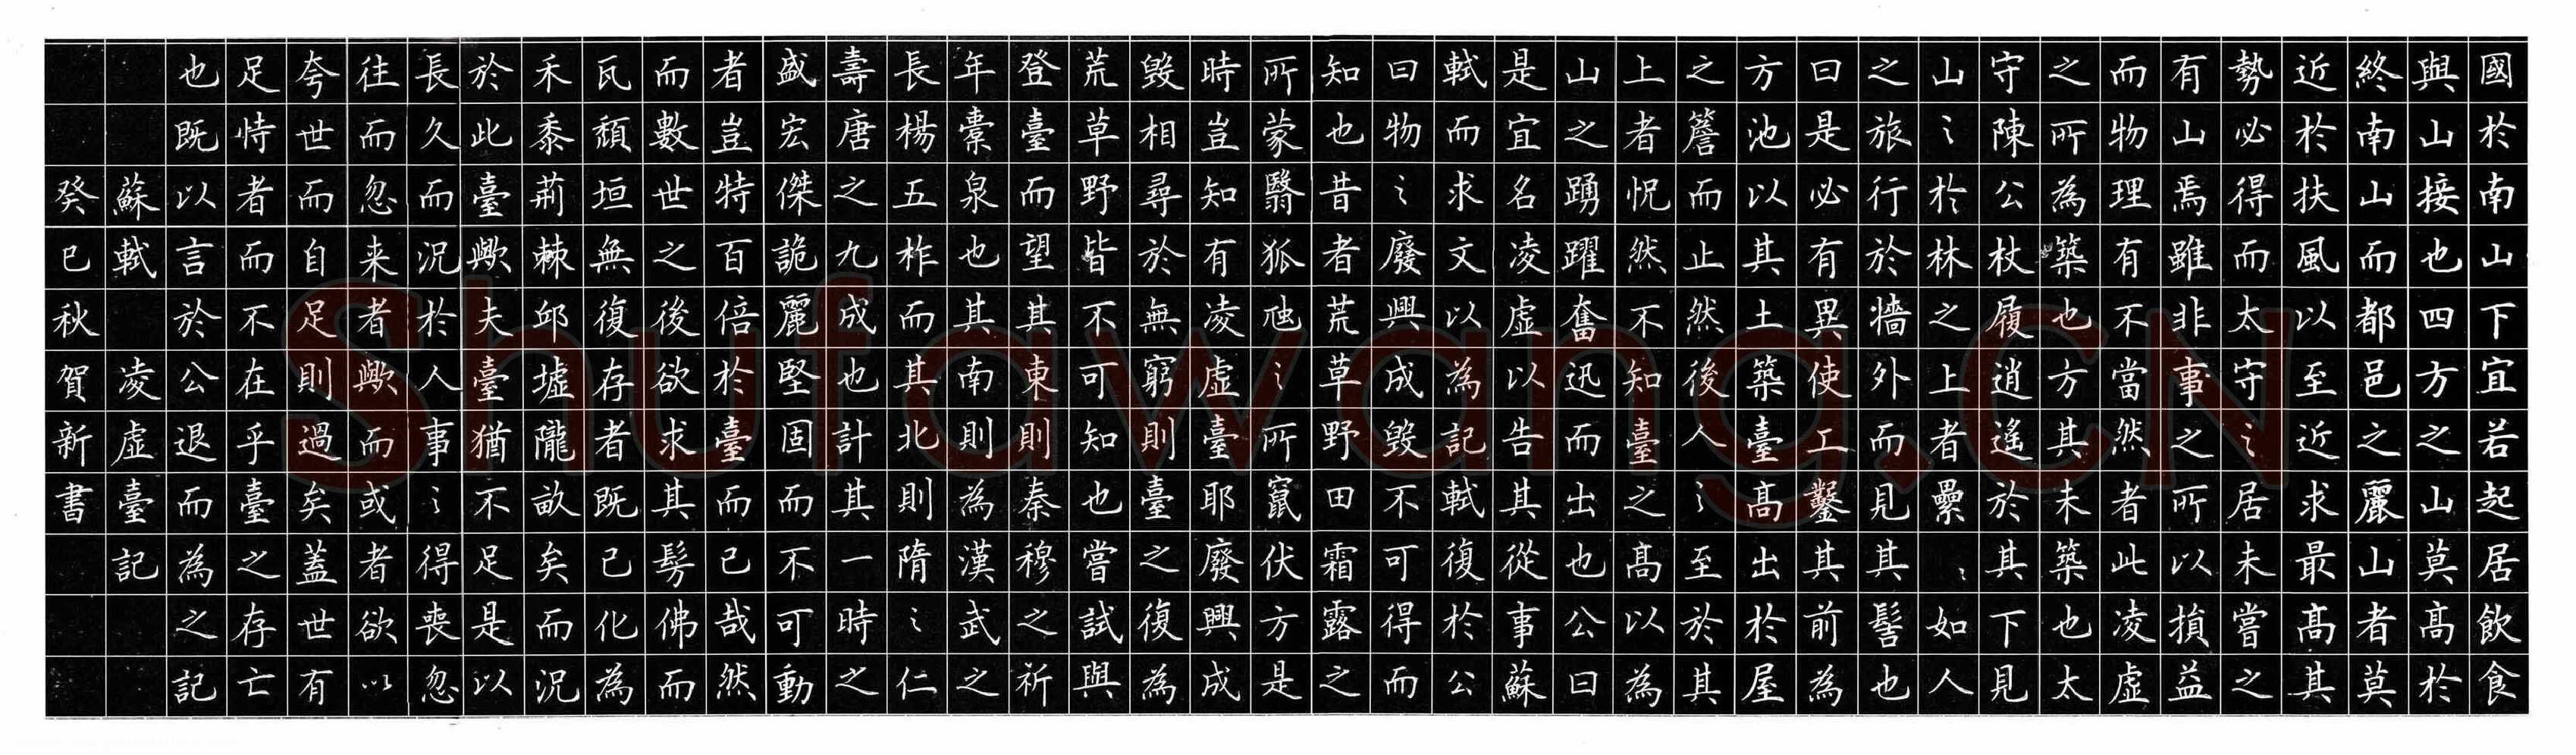 國於南山下宜若起居飲食
與山接也四方之山莫高於
終南山而都邑之麗山者莫
近於扶風以至近求最高其
勢必得而太守〻居未嘗之
有山焉雖非事之所以損益
而物理有不當然者此凌虛
之所為築也方其未築也太
守陳公杖履逍遙於其下見
山〻於林之上者纍〻如人
之旅行於墻外而見其髻也
曰是必有異使工鑿其前為
方池以其土築臺高出於屋
之簷而止然後人〻至於其
上者怳然不知臺之高以為
山之踴躍奮迅而出也公曰
是宜名凌虛以告其從事蘇
軾而求文以為記軾復於公
曰物〻廢興成毀不可得而
知也昔者荒草野田霜露之
所蒙翳狐虺〻所竄伏方是
時豈知有凌虛臺耶廢興成
毀相尋於無窮則臺之復為
荒草野皆不可知也嘗試與
登臺而望其東則秦穆之祈
年橐泉也其南則為漢武之
長楊五柞而其北則隋〻仁
壽唐之九成也計其一時之
盛宏傑詭麗堅固而不可動
者豈特百倍於臺而已哉然
而數世之後欲求其髣佛而
瓦頹垣無復存者既已化為
禾黍荊棘邱墟隴畝矣而況
於此臺歟夫臺猶不足是以
長久而況於人事〻得喪忽
往而忽来者歟而或者欲以
夸世而自足則過矣蓋世有
足恃者而不在乎臺之存亡
也既以言於公退而為之記
蘇軾 凌虛臺記
癸巳秋賀新書